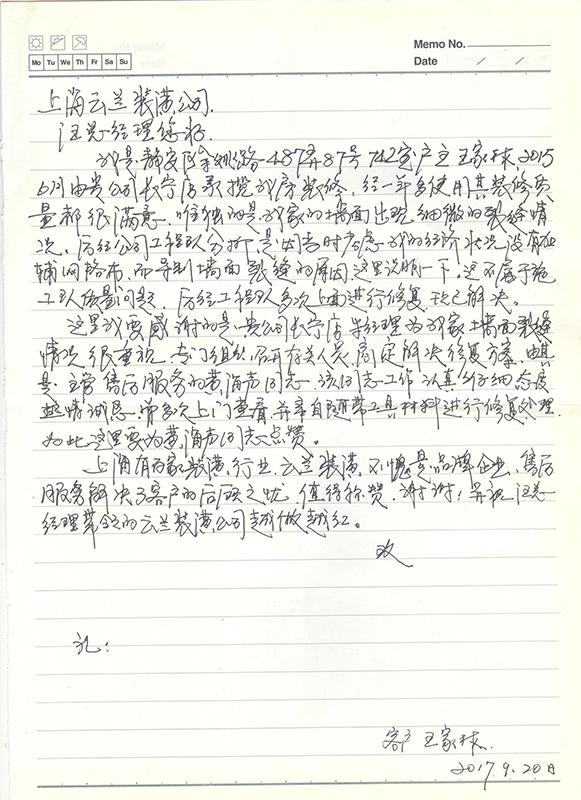 Memo No.
Mo Tu We Th Fr Sa Su
Date / /
上海云兰装潢公司.
汪总经理
我是静安区余姚路487弄87号742室户主王家林,2015
6月由贵公司长宁店承揽我房装修,经一年多使用其装修质
量都很满意。唯独的是我家的墙面出现细微的裂缝情
况,后经公司工程队分析是因当时考虑我的经济状况没有做
辅网格布,而导到墙面裂缝的原因,这里说明一下,这不属于施
工队质量问题,后经工程队多次上面进行修复,现已解决。
这里我要感谢的是贵公司长宁店 经理为我家墙面裂缝
情况很重视,专门组织召开有关人员商定解决修复方案,由其
是主管售后服务的黄海声同志,该同志工作认真仔细,态度
热情诚恳,曾多次上门查看,并亲自随带工具材料进行修复处理
为此这里要为黄海声同志点赞。
上海有百家装潢行业,云兰装潢,不愧是品牌企业,售后
服务解决了客户的后顾之忧,值得称赞,谢谢!并祝汪总
经理带领的云兰装潢公司越做越红。
致
礼!
客户 王家林.
2017.9.20日